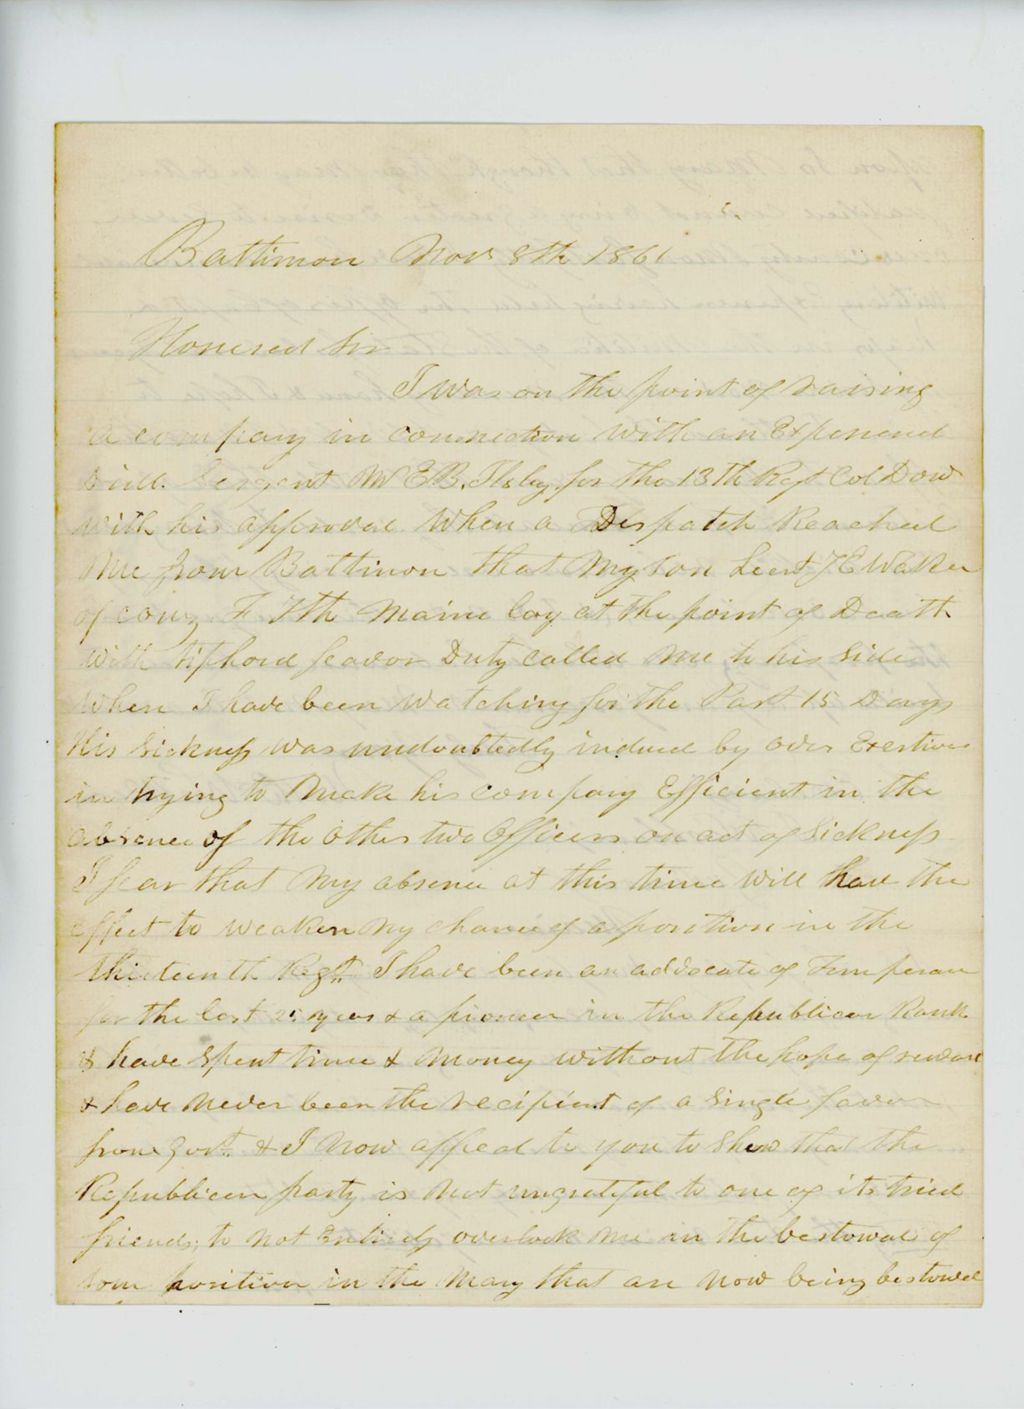 Baltimore Nov 8th 1861
Honered Sir
I was on the point of raising
a company in connection with an Experienced
Drill Sergent M E B. Ilsley for the 13th Regt Col Dow
with his approval when a Despatch Reached
Me from Baltimore that My son Lieut J E Walker
of comy F 7th Maine lay at the point of Death
with tiphoid feavor Duty called me to his side
Where I have been watching for the Past 15 Days
His Sickness was undoubtedly induced by over Exertion
in trying to Make his company Efficient in the
absence of the other two Officers on act of Sickness
I fear that My absence at this time will have the
effect to weaken my chance of a position in the
thirteenth Regt. I have been an advocate of Temperan
for the last 25 years & a pioneer in the Republican Rank
& have spent time & money without the hope of reward
& have never been the recipient of a Single favor
from Govt. & I Now appeal to you to Show that the
Republican party is Not ungrateful to one of its tried
friends, to Not Entirely overlook me in the bestowal of
som position in the Many that are Now being bestowed